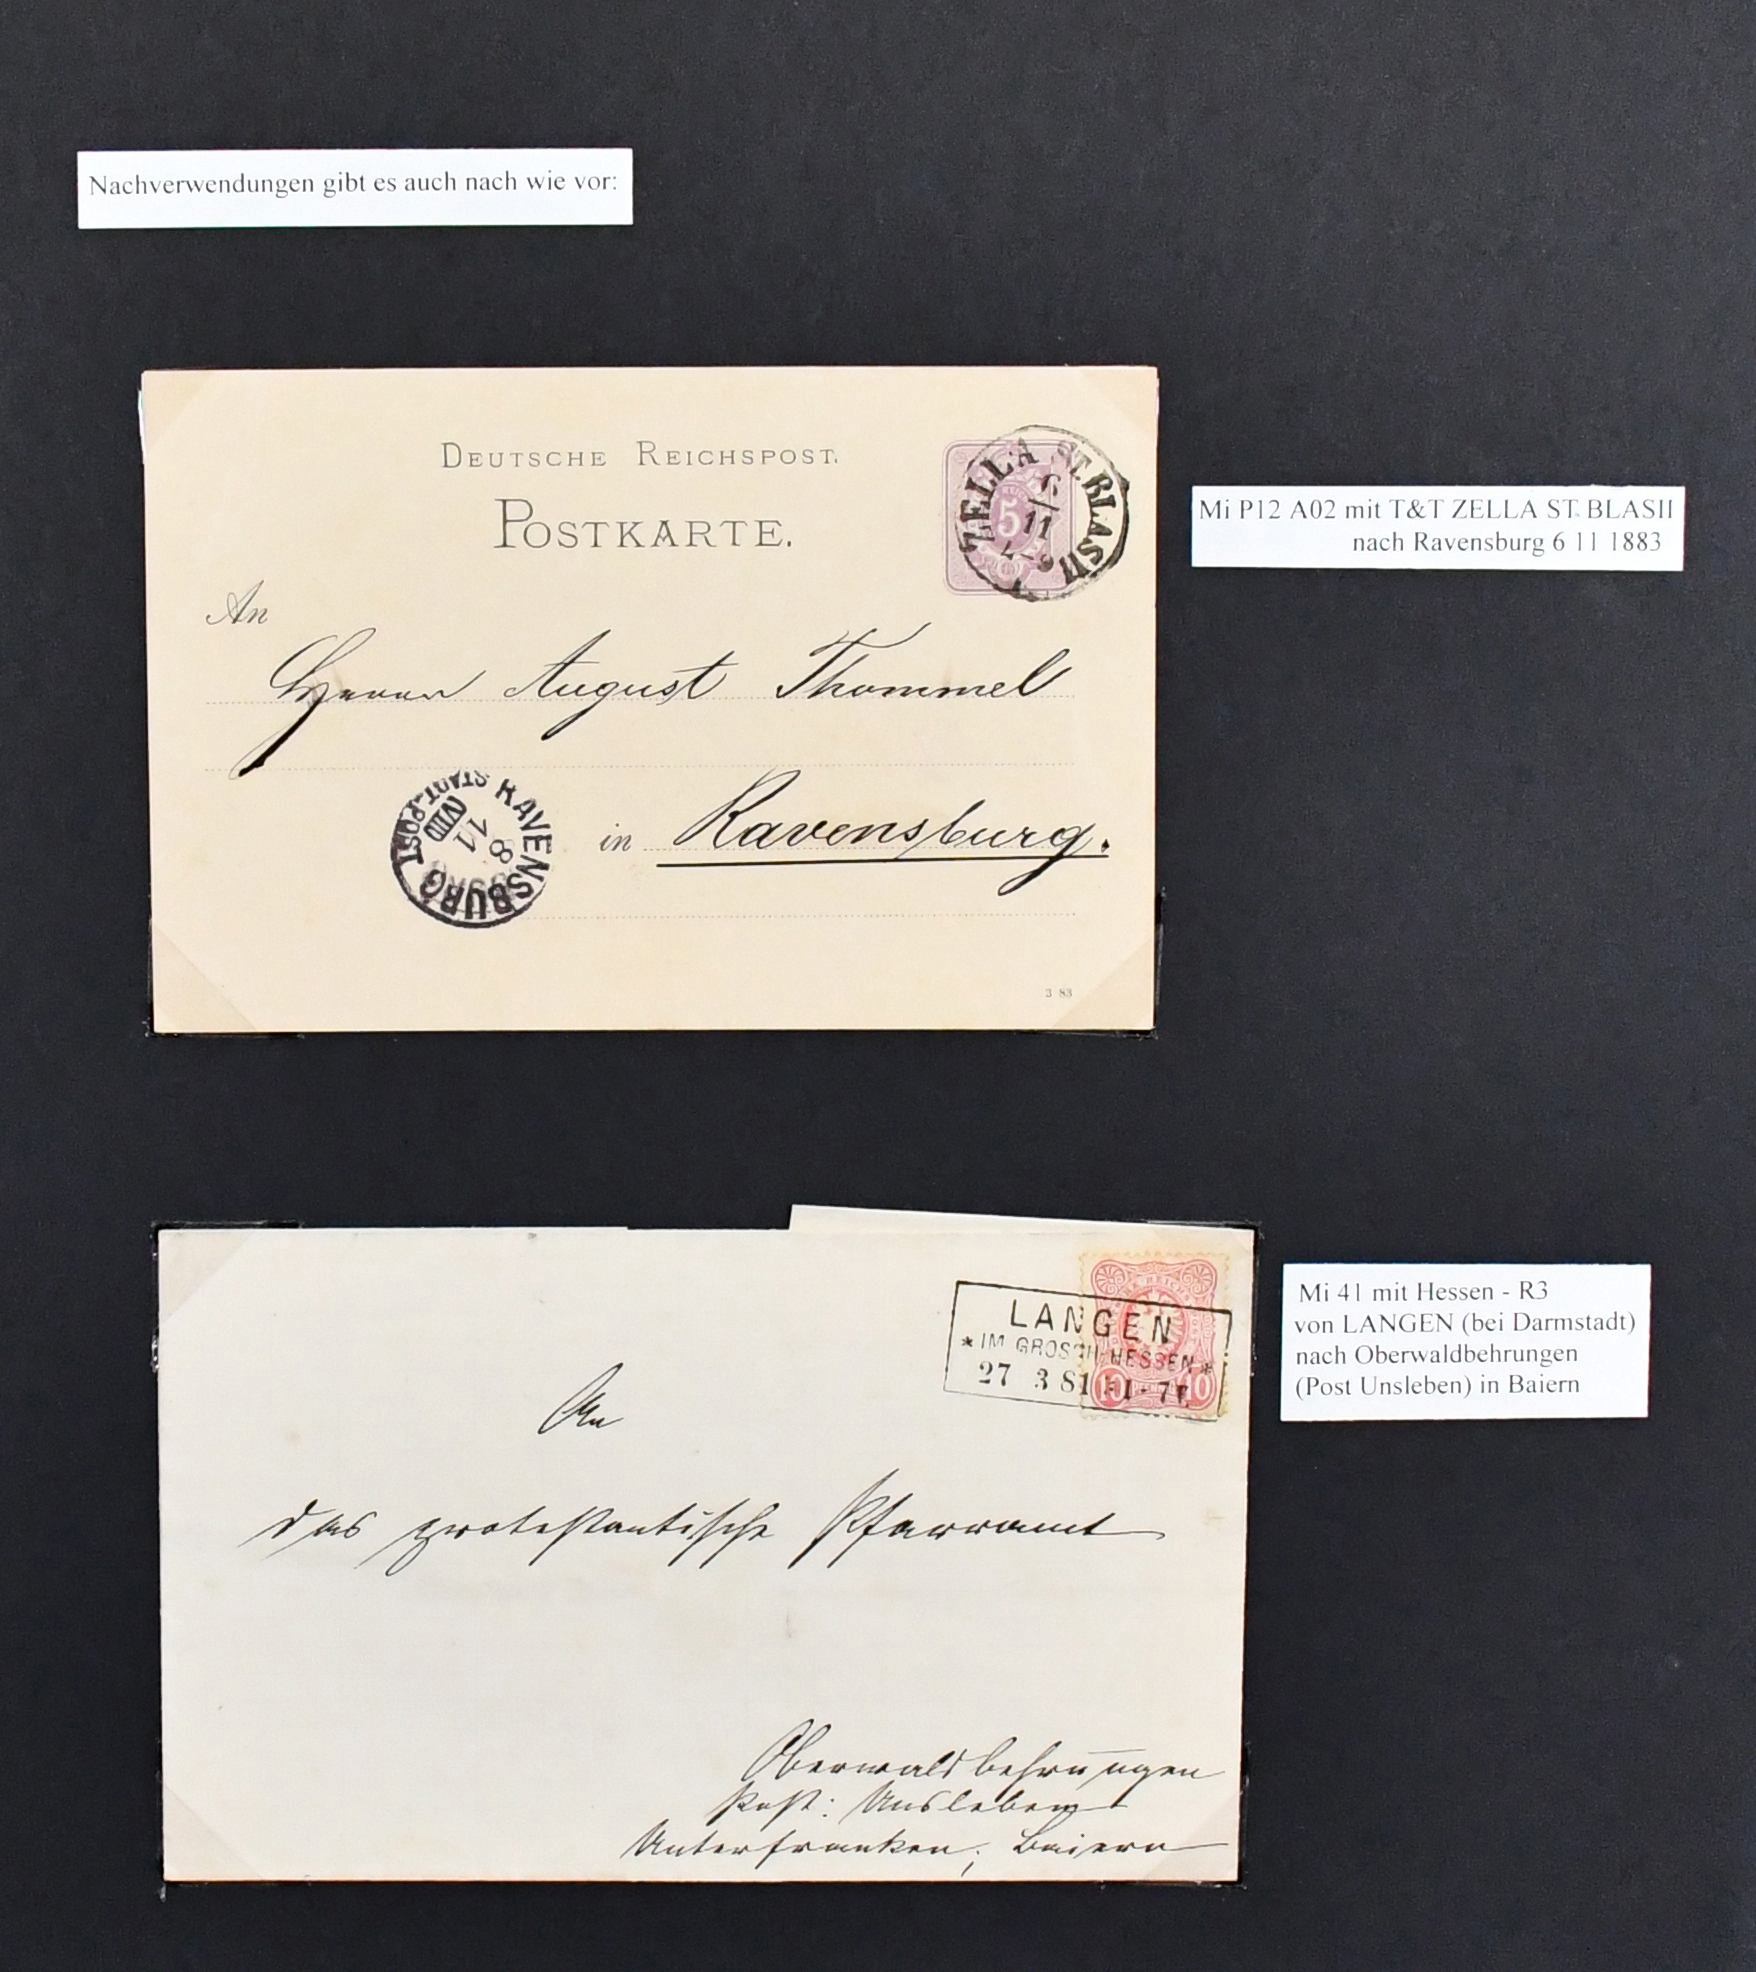 Nachverwendungen gibt es auch nach wie vor:
DEUTSCHE REICHSPOST.
POSTKARTE.
ZELLA ST. BLASII
6
11
5
Mi P12 A02 mit T&T ZELLA ST. BLASII
nach Ravensburg 6 11 1883
An
Herrn August Thommel
in Ravensburg.
RAVENSBURG
STADT-POST
8
11
VIII
3 83
LANGEN
* IM GROSSH. HESSEN *
27 3 81
10 10
Mi 41 mit Hessen - R3
von LANGEN (bei Darmstadt)
nach Oberwaldbehrungen
(Post Unsleben) in Baiern
An
das protestantische Pfarramt
Oberwaldbehrungen
Post: Unsleben
Unterfranken, Baiern